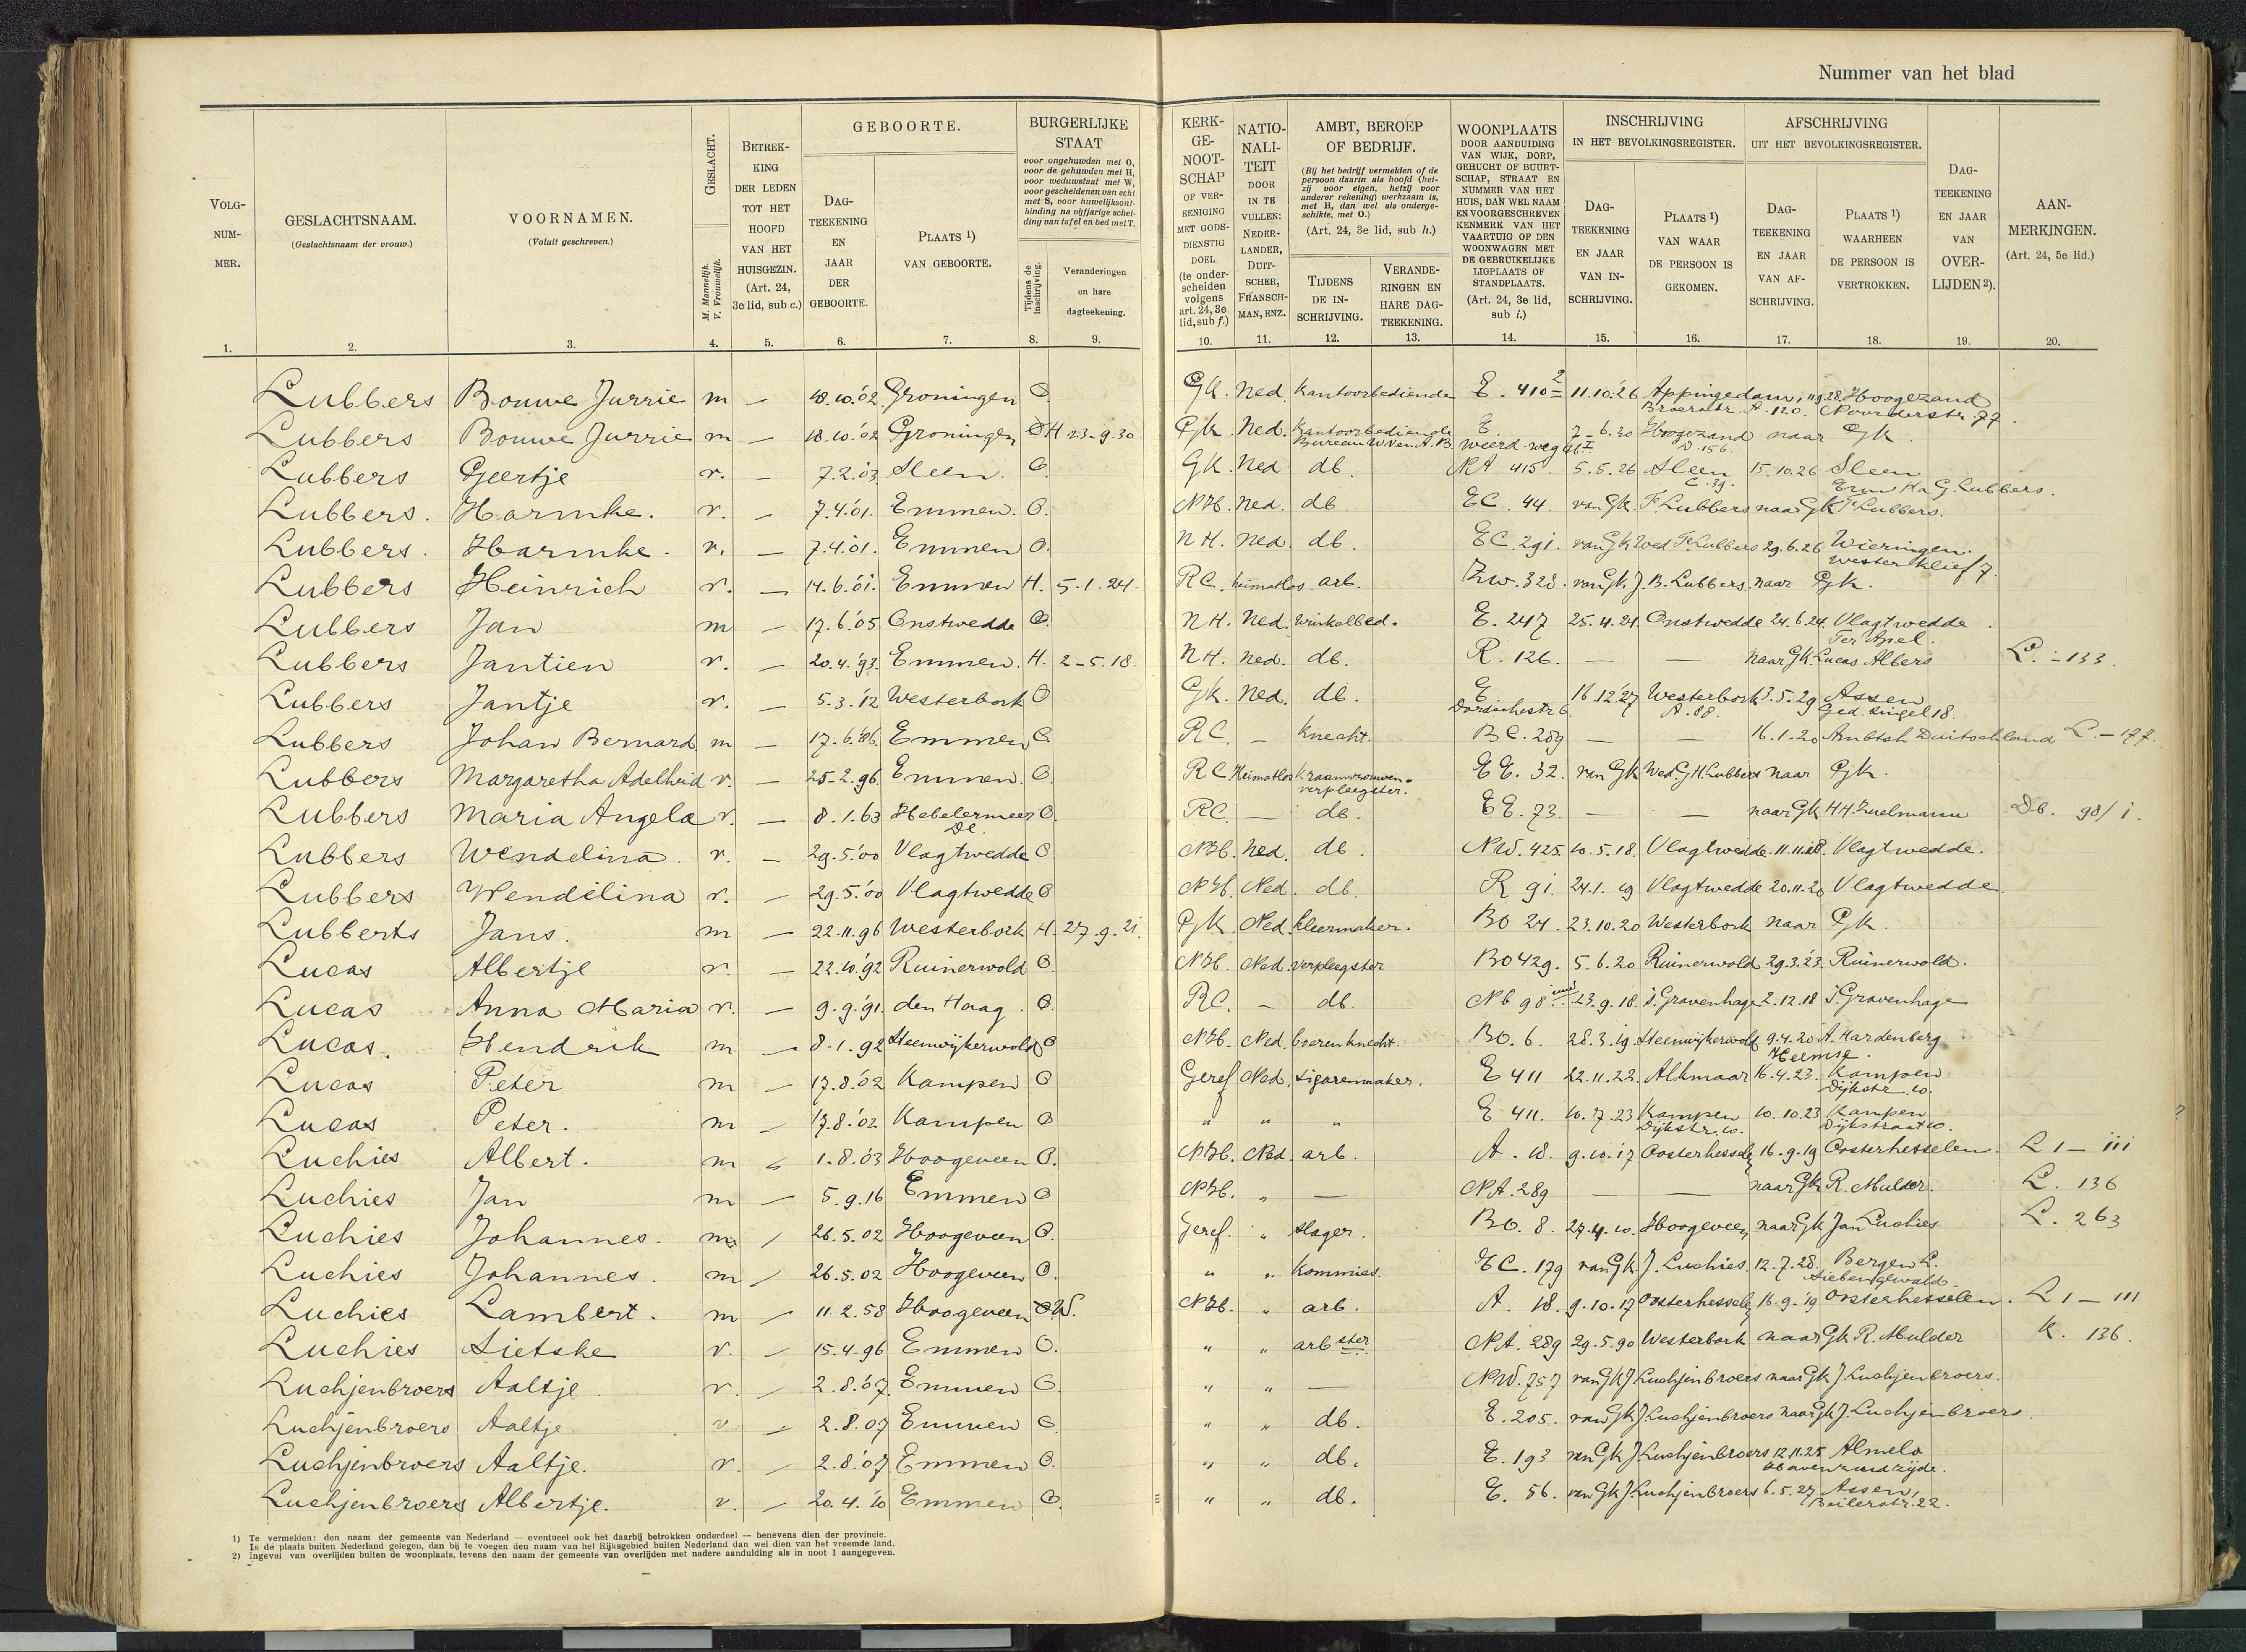 Nummer van het blad
VOLGNUMMER.
GESLACHTSNAAM.
(Geslachtsnaam der vrouw.)
VOORNAMEN.
(Voluit geschreven.)
GESLACHT.
M. Mannelijk. V. Vrouwelijk.
BETREKKING DER LEDEN TOT HET HOOFD VAN HET HUISGEZIN. (Art. 24, 3e lid, sub c.)
GEBOORTE.
DAGTEEKENING EN JAAR DER GEBOORTE.
PLAATS 1) VAN GEBOORTE.
BURGERLIJKE STAAT
voor ongehuwden met O, voor de gehuwden met H, voor weduwstaat met W, voor gescheidenen van echt met S, voor huwelijksontbinding na vijfjarige scheiding van tafel en bed met T.
Tijdens de inschrijving.
Veranderingen en hare dagteekening.
KERKGENOOTSCHAP OF VEREENIGING MET GODSDIENSTIG DOEL (te onderscheiden volgens art. 24, 3e lid, sub f.)
NATIONALITEIT DOOR IN TE VULLEN: NEDERLANDER, DUITSCHER, FRANSCHMAN, ENZ.
AMBT, BEROEP OF BEDRIJF.
(Bij het bedrijf vermelden of de persoon daarin als hoofd (hetzij voor eigen, hetzij voor anderer rekening) werkzaam is, met H, dan wel als ondergeschikte, met O.)
(Art. 24, 3e lid, sub h.)
TIJDENS DE INSCHRIJVING.
VERANDERINGEN EN HARE DAGTEEKENING.
WOONPLAATS DOOR AANDUIDING VAN WIJK, DORP, GEHUCHT OF BUURTSCHAP, STRAAT EN NUMMER VAN HET HUIS, DAN WEL NAAM EN VOORGESCHREVEN KENMERK VAN HET VAARTUIG OF DEN WOONWAGEN MET DE GEBRUIKELIJKE LIGPLAATS OF STANDPLAATS. (Art. 24, 3e lid, sub i.)
INSCHRIJVING IN HET BEVOLKINGSREGISTER.
DAGTEEKENING EN JAAR VAN INSCHRIJVING.
PLAATS 1) VAN WAAR DE PERSOON IS GEKOMEN.
AFSCHRIJVING UIT HET BEVOLKINGSREGISTER.
DAGTEEKENING EN JAAR VAN AFSCHRIJVING.
PLAATS 1) WAARHEEN DE PERSOON IS VERTROKKEN.
DAGTEEKENING EN JAAR VAN OVERLIJDEN 2).
AANMERKINGEN. (Art. 24, 5e lid.)
1. 2. 3. 4. 5. 6. 7. 8. 9. 10. 11. 12. 13. 14. 15. 16. 17. 18. 19. 20.
Lubbers Bouwe Jurrie m — 18.10.'02 Groningen O Gk. Ned. Kantoorbediende E. 410 2 11.10.'26 Appingedam, Broerstr. A. 120. 11.9.28. Hoogezand Noorderstr. 77.
Lubbers Bouwe Jurrie m — 18.10.'02 Groningen O H 23-9.30 Gk. Ned. Kantoorbediende E. Weerd.weg 46 I 7-6.30 Hoogezand D. 156. naar Gk.
Lubbers Geertje v. — 7.2.'03 Sleen. O. Gk. Ned db. NA 415. 5.5.26 Sleen C. 39. 15.10.26 Sleen Erm Ha G. Lubbers.
Lubbers. Harmke. v. — 7.4.'01. Emmen. O. NH. Ned. db EC. 44 van Gk. Fe Lubbers naar Gk Fe Lubbers.
Lubbers. Harmke. v. — 7.4.'01. Emmen O. NH. ned. db. EC. 291. van Gk Wed Fe Lubbers 29.6.26 Wieringen. Westerklief 7.
Lubbers Heinrich v. — 14.6.'01. Emmen H. 5.1.24. RC. heimatlos arb. Zw. 328. van Gk J. B. Lubbers. naar Gk.
Lubbers Jan m — 17.6.'05 Onstwedde O. NH. Ned. winkelbed. E. 247 25.4.24. Onstwedde 24.6.24. Vlagtwedde Ter Apel.
Lubbers Jantien v. — 20.4.'93. Emmen. H. 2-5.18. NH. ned. db. R. 126. — — naar Gk. Lucas Albers L. - 133.
Lubbers Jantje v. — 5.3.'12 Westerbork O Gk. Ned. db. E. Dordschestr 6. 16.12.'27 Westerbork A. 88. 3.5.29 Assen Ged. Singel 18.
Lubbers Johan Bernard m — 17.6.'86. Emmen O. RC. — Knecht. BC. 289 — — 16.1.20 Ambtsh Duitschland L. - 177.
Lubbers Margaretha Adelheid v. — 25-2.96. Emmen. O. RC. Heimatlos Kraamvrouwenverpleegster. EE. 32. van Gk Wed. G H. Lubbers naar Gk.
Lubbers Maria Angela v. — 8.1.63 Hebelermeer Dl. O. RC. — db. EE. 73. — — naar Gk H H. Zuelmann Db. 98/1.
Lubbers Wendelina. v. — 29.5.'00 Vlagtwedde O NH. Ned. db. NW. 425. 10.5.18. Vlagtwedde. 11.11.18. Vlagtwedde.
Lubbers Wendelina v. — 29.5.'00 Vlagtwedde O NH. Ned. db. R 91. 24.1.19 Vlagtwedde 20.11.20 Vlagtwedde.
Lubberts Jans. m — 22.11.96 Westerbork H. 27.9.21. Gk. Ned. kleermaker. BO 24. 23.10.20 Westerbork naar Gk.
Lucas Albertje v. — 22.10.'92 Ruinerwold O. NH. Ned. verpleegster BO 429. 5.6.20 Ruinerwold 29.3.'23. Ruinerwold.
Lucas Anna Maria v. — 9.9.'91. den Haag. O. RC. — db. Nb 98 23.9.18. 's. Gravenhage 2.12.18 's. Gravenhage
Lucas. Hendrik m — 8.1.92 Steenwijkerwold O NH. Ned. boerenknecht. BO. 6. 28.3.19. Steenwijkerwold 9.4.20 A. Hardenberg Heemse.
Lucas Peter m — 17.8.'02 Kampen O Geref Ned. sigarenmaker. E 411 22.11.22. Alkmaar 16.4.23. Kampen Dijkstr. 10.
Lucas Peter. m — 17.8.'02 Kampen O " " " E 411. 10.7.23 Kampen Dijkstr. 10. 10.10.23 Kampen Dijkstraat 10.
Luchies Albert. m — 1.8.'03 Hoogeveen O. NH. Ned. arb. A. 18. 9.10.'17 Oosterhesselen 16.9.19 Oosterhesselen. L 1 — 111
Luchies Jan m — 5.9.16 Emmen O NH. " — NA. 289 — — naar Gk R. Mulder. L. 136
Luchies Johannes. m — 26.5.02 Hoogeveen O. Geref. " slager. BO. 8. 27.4.10. Hoogeveen naar Gk Jan Luchies L. 263
Luchies Johannes. m — 26.5.02 Hoogeveen O. " " Kommies. EC. 179 van Gk J. Luchies. 12.7.28. Bergen L. Siebengewald.
Luchies Lambert. m — 11.2.58 Hoogeveen O W. NH. " arb. A. 18. 9.10.17 Oosterhesselen 16-9-'19 Oosterhesselen. L 1 — 111
Luchies Sietske v. — 15.4.96 Emmen O. " " arbster NA. 289 29.5.90 Westerbork naar Gk R. Mulder K. 136.
Luchjenbroers Aaltje v. — 2.8.'07. Emmen O. " " — NW. 757 van Gk J Luchjenbroers naar Gk J. Luchjenbroers.
Luchjenbroers Aaltje v — 2.8.07 Emmen O " " db. E. 205. van Gk J Luchjenbroers naar Gk J. Luchjenbroers
Luchjenbroers Aaltje. v — 2.8.'07. Emmen O. " " db. E. 193 van Gk J Luchjenbroers 12.11.25 Almelo Havenzuidzijde.
Luchjenbroers Albertje. v. — 20.4.'10 Emmen O. " " db. E. 56. van Gk J. Luchjenbroers 6.5.27 Assen, Beilerstr. 22.
1) Te vermelden: den naam der gemeente van Nederland — eventueel ook het daarbij betrokken onderdeel — benevens dien der provincie.
Is de plaats buiten Nederland gelegen, dan bij te voegen den naam van het Rijksgebied buiten Nederland dan wel dien van het vreemde land.
2) Ingeval van overlijden buiten de woonplaats, tevens den naam der gemeente van overlijden met nadere aanduiding als in noot 1 aangegeven.